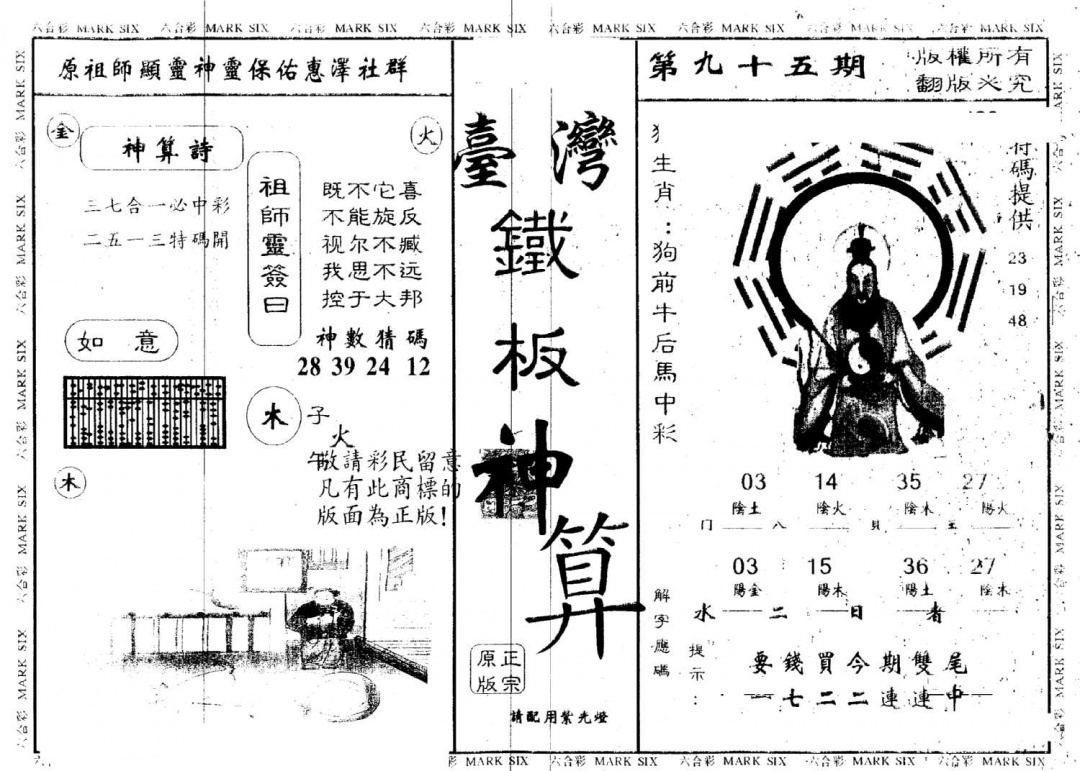 六合彩 MARK SIX 六合彩 MARK SIX 六合彩 MARK SIX 六合彩 MARK SIX 六合彩 MARK SIX 六合彩 MARK SIX 六合彩 MARK SIX 六合彩 MARK SIX
原祖師顯靈神靈保佑惠澤社群
金
火
神算詩
三七合一必中彩
二五一三特碼開
祖師靈簽曰
既不它喜
不能旋反
视尔不臧
我思不远
控于大邦
神數猜碼
28 39 24 12
如意
木 子
火
午
木
敬請彩民留意
凡有此商標的
版面為正版!
臺灣
鐵
板
神
算
正宗
原版
請配用紫光燈
第九十五期
版權所有
翻版必究
生肖:狗前牛后馬中彩
碼提供
23
19
48
03 14 35 27
陰土 陰火 陰木 陽火
門 八 貝 王
03 15 36 27
陽金 陽木 陽土 陰木
水 二 日 者
解字應碼
提示:
要錢買今期雙尾
一七二二連連中
六合彩 MARK SIX 六合彩 MARK SIX 六合彩 MARK SIX 六合彩 MARK SIX 六合彩 MARK SIX